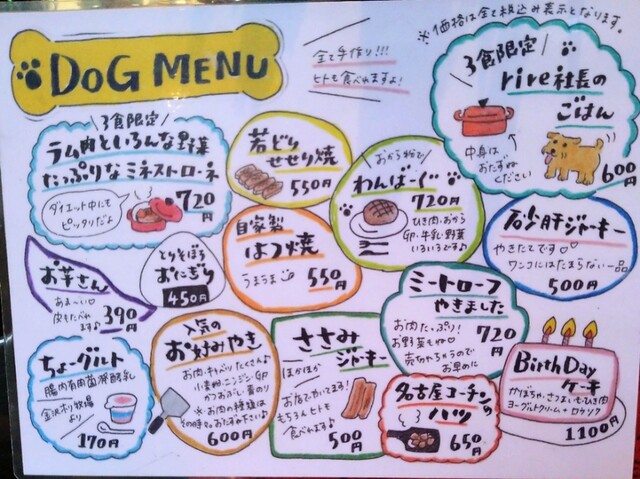 ※価格は全て税込み表示となります。
DOG MENU
全て手作り!!!
ヒトも食べれますよ!
3食限定
rire社長の
ごはん
中身は
おたずね
ください
600円
3食限定
ラム肉といろんな野菜
たっぷりなミネストローネ
ダイエット中にも
ピッタリだよ
720円
若どり
せせり焼
550円
おから粉で
わんばーぐ
720円
ひき肉・おから
卵・牛乳・野菜
いろいろです♪
砂肝ジャーキー
やきたてです♡
ワンコにはたまらない一品
500円
お芋さん
あま〜い♡
皮もたべれ
ますよ
390円
とりそぼろ
おにぎり
450円
自家製
はつ焼
うまうま
550円
ミートローフ
やきました
お肉たっぷり!
お野菜もね♡
売切れちゃうので
お早めに
720円
ちょーグルト
腸内有用菌発酵乳
金沢ホリ牧場
より
170円
人気の
お好みやき
お肉・キャベツたくさんよ
小麦粉・ニンジン・卵
かつおぶし・青のり
※お肉の種類は
その時々。おたずね下さい♪
600円
ささみ
ジャーキー
ほかほか
お店でやいてます!
もちろんヒトも
食べれますよ♪
500円
名古屋コーチンの
ハツ
650円
BirthDay
ケーキ
かぼちゃ、さつまいも・ひき肉
ヨーグルトクリーム+ロウソク
1100円